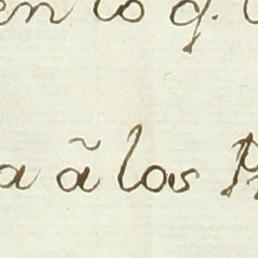 en lo q.
a ã los